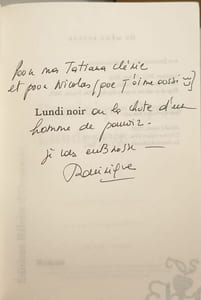 Pour ma Tatiana chérie
et pour Nicolas (que j'aime aussi)
Lundi noir ou la chute d'un
homme de pouvoir.
je vous embrasse —
Dominique